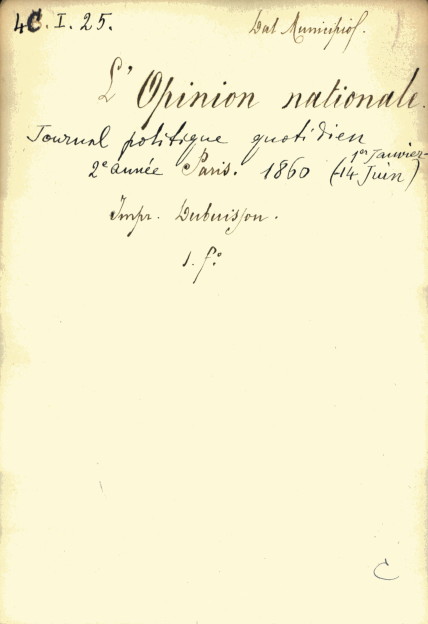 4C. I. 25. Dal Municipio.
L'Opinion nationale.
Journal politique quotidien
2e année Paris. 1860 (1er Janvier-
14 Juin)
Impr. Dubuisson.
1. fº
C